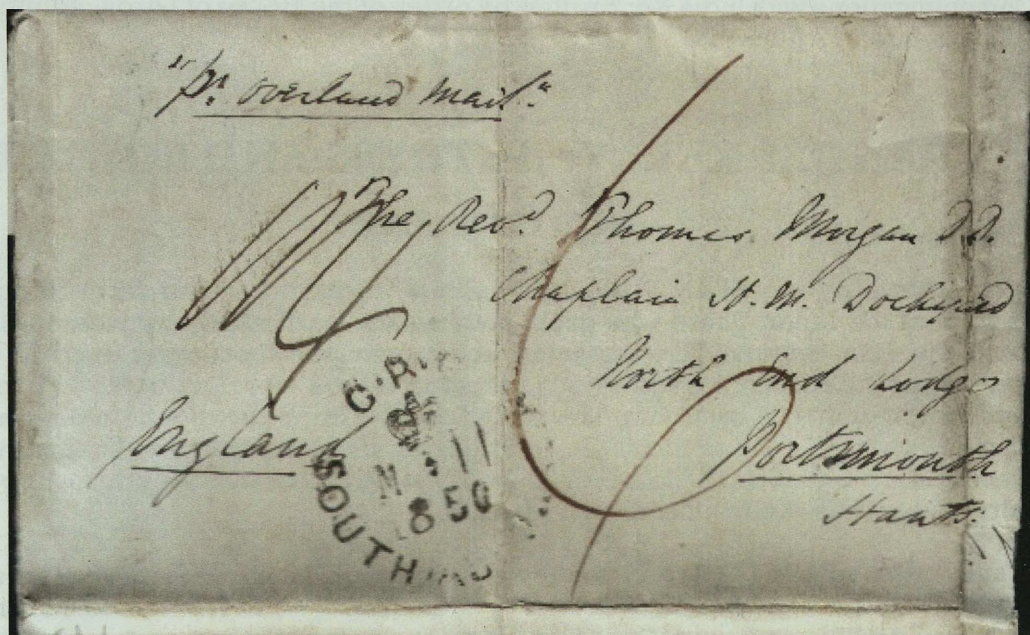 "pr. overland mail."
The Revd. Thomas Morgan D.D.
Chaplain H.M. Dockyard
North End Lodge
Portsmouth
Hants:
England
11
1850
SOUTH